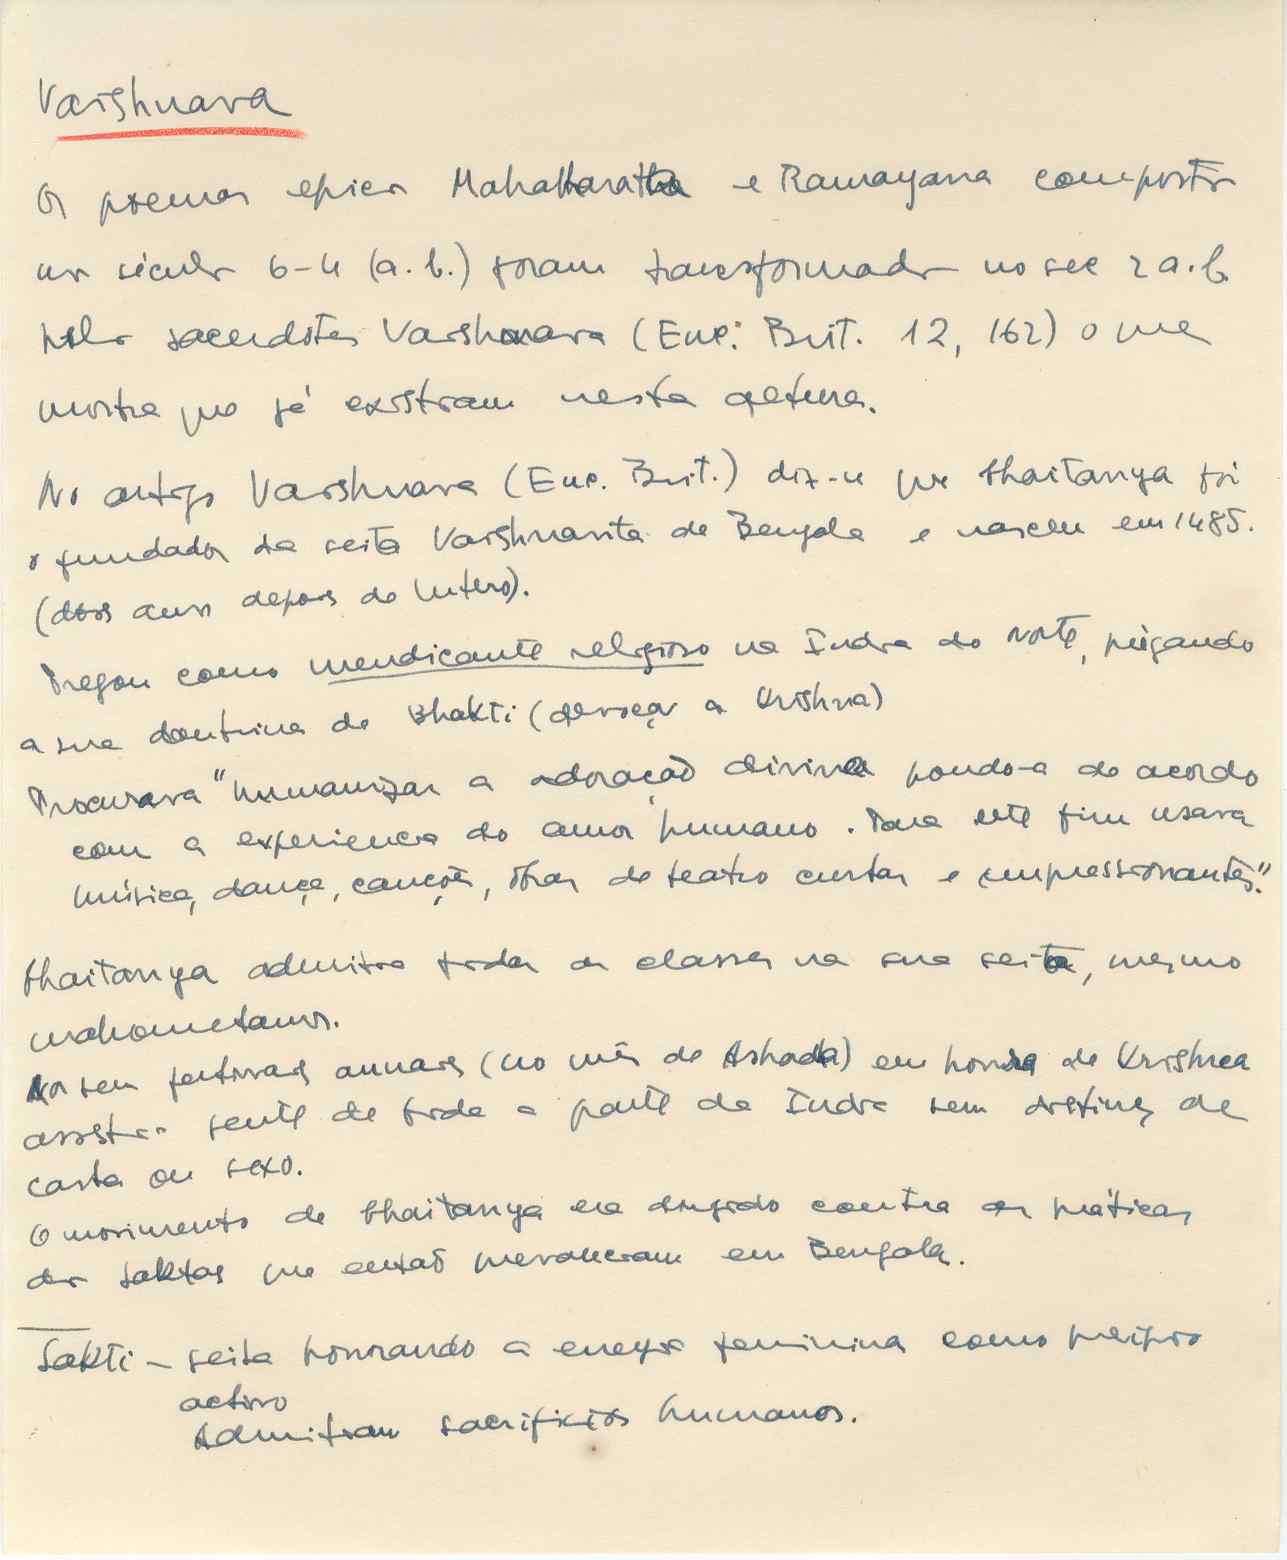 Vaishnava
Os poemas epicos Mahabharatha e Ramayana compostos
nos séculos 6-4 (a.C.) foram transformados no sec 2 a.C.
pelos sacerdotes Vaishnava (Enc. Brit. 12, 162) o que
mostra que já existiam nesta altura.
No artigo Vaishnava (Enc. Brit.) diz-se que Chaitanya foi
o fundador da seita Vaishnavita de Bengala e nasceu em 1485.
(dois anos depois de Lutero).
Pregou como mendicante religioso na India do Norte, pregando
a sua doutrina de Bhakti (devoção a Krishna)
Procurava "humanizar a adoração divina pondo-a de acordo
com a experiencia do amor humano. Para este fim usava
música, dança, canções, obras de teatro curtas e impressionantes."
Chaitanya admitia todas as classes na sua seita, mesmo
mahometanos.
Nos seus festivais annuais (no mês de Ashada) em honra de Krishna
assistia gente de toda a parte da India sem distinç de
casta ou sexo.
O movimento de Chaitanya era dirigido contra as práticas
dos Saktas que então prevaleciam em Bengala.
Sakti - seita honrando a energia feminina como principio
activo
Admitiam sacrificios humanos.